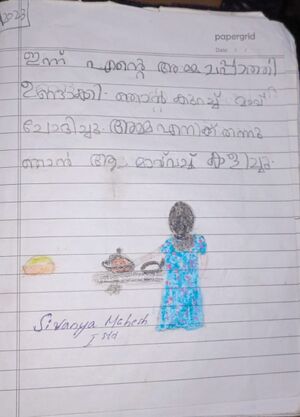 2023
papergrid
Date
ഇന്ന് എന്റെ അമ്മ ചപ്പാത്തി
ഉണ്ടാക്കി. ഞാൻ കുറച്ച് മാവ്
ചോദിച്ചു. അമ്മ എനിക്ക് തന്നു
ഞാൻ ആ മാവ് കളിച്ചു.
Sivanya Mahesh
I std